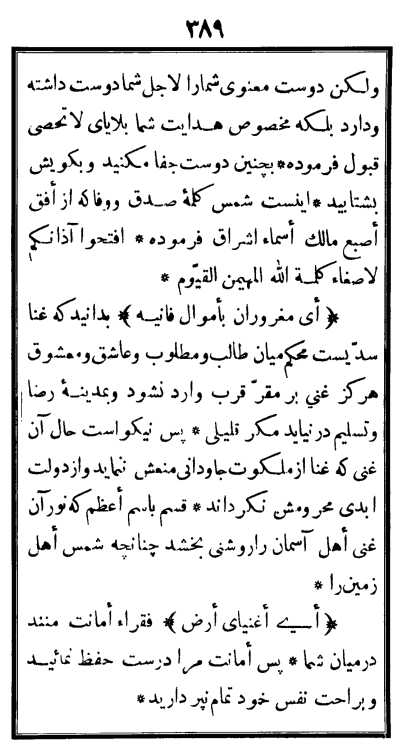 ٣٨٩
ولکن دوست معنوی شمارا لاجل شما دوست داشته
ودارد بلکه مخصوص هدایت شما بلایای لا تحصی
قبول فرموده * بچنین دوست جفا مکنید و بکویش
بشتابید * اینست شمس کلمهٔ صدق ووفا که از أفق
أصبع مالك أسماء اشراق فرموده * افتحوا آذانکم
لاصغاء کلمة الله المهیمن القیّوم *
﴿ أی مغروران بأموال فانیه ﴾ بدانید که غنا
سدّیست محکم میان طالب ومطلوب وعاشق ومعشوق
هرکز غنی بر مقرّ قرب وارد نشود وبمدینهٔ رضا
وتسلیم درنیاید مکر قلیلی * پس نیکواست حال آن
غنی که غنا از ملکوت جاودانی منعش ننماید واز دولت
ابدی محرومش نکرداند * قسم باسم أعظم که نور آن
غنی أهل آسمان را روشنی بخشد چنانچه شمس أهل
زمین را *
﴿ أی أغنیای أرض ﴾ فقراء أمانت منند
درمیان شما * پس أمانت مرا درست حفظ نمائید
و براحت نفس خود تمام نپردازید *